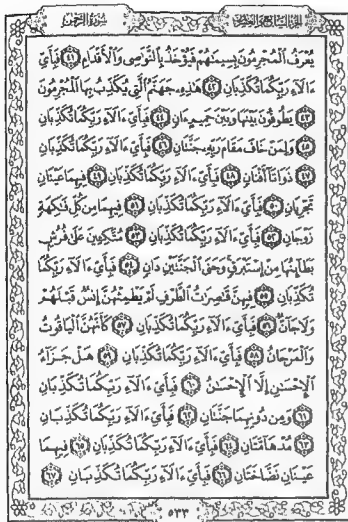 الجزء السابع والعشرون
سورة الرحمن
يُعْرَفُ الْمُجْرِمُونَ بِسِيمَاهُمْ فَيُؤْخَذُ بِالنَّوَاصِي وَالْأَقْدَامِ ٤١ فَبِأَيِّ
ءَالَاءِ رَبِّكُمَا تُكَذِّبَانِ ٤٢ هَٰذِهِ جَهَنَّمُ الَّتِي يُكَذِّبُ بِهَا الْمُجْرِمُونَ
٤٣ يَطُوفُونَ بَيْنَهَا وَبَيْنَ حَمِيمٍ ءَانٍ ٤٤ فَبِأَيِّ ءَالَاءِ رَبِّكُمَا تُكَذِّبَانِ
٤٥ وَلِمَنْ خَافَ مَقَامَ رَبِّهِ جَنَّتَانِ ٤٦ فَبِأَيِّ ءَالَاءِ رَبِّكُمَا تُكَذِّبَانِ
٤٧ ذَوَاتَا أَفْنَانٍ ٤٨ فَبِأَيِّ ءَالَاءِ رَبِّكُمَا تُكَذِّبَانِ ٤٩ فِيهِمَا عَيْنَانِ
تَجْرِيَانِ ٥٠ فَبِأَيِّ ءَالَاءِ رَبِّكُمَا تُكَذِّبَانِ ٥١ فِيهِمَا مِن كُلِّ فَاكِهَةٍ
زَوْجَانِ ٥٢ فَبِأَيِّ ءَالَاءِ رَبِّكُمَا تُكَذِّبَانِ ٥٣ مُتَّكِئِينَ عَلَىٰ فُرُشٍ
بَطَائِنُهَا مِنْ إِسْتَبْرَقٍ وَجَنَى الْجَنَّتَيْنِ دَانٍ ٥٤ فَبِأَيِّ ءَالَاءِ رَبِّكُمَا
تُكَذِّبَانِ ٥٥ فِيهِنَّ قَاصِرَاتُ الطَّرْفِ لَمْ يَطْمِثْهُنَّ إِنسٌ قَبْلَهُمْ
وَلَا جَانٌّ ٥٦ فَبِأَيِّ ءَالَاءِ رَبِّكُمَا تُكَذِّبَانِ ٥٧ كَأَنَّهُنَّ الْيَاقُوتُ
وَالْمَرْجَانُ ٥٨ فَبِأَيِّ ءَالَاءِ رَبِّكُمَا تُكَذِّبَانِ ٥٩ هَلْ جَزَاءُ
الْإِحْسَانِ إِلَّا الْإِحْسَانُ ٦٠ فَبِأَيِّ ءَالَاءِ رَبِّكُمَا تُكَذِّبَانِ
٦١ وَمِن دُونِهِمَا جَنَّتَانِ ٦٢ فَبِأَيِّ ءَالَاءِ رَبِّكُمَا تُكَذِّبَانِ
٦٣ مُدْهَامَّتَانِ ٦٤ فَبِأَيِّ ءَالَاءِ رَبِّكُمَا تُكَذِّبَانِ ٦٥ فِيهِمَا
عَيْنَانِ نَضَّاخَتَانِ ٦٦ فَبِأَيِّ ءَالَاءِ رَبِّكُمَا تُكَذِّبَانِ ٦٧
٥٣٣